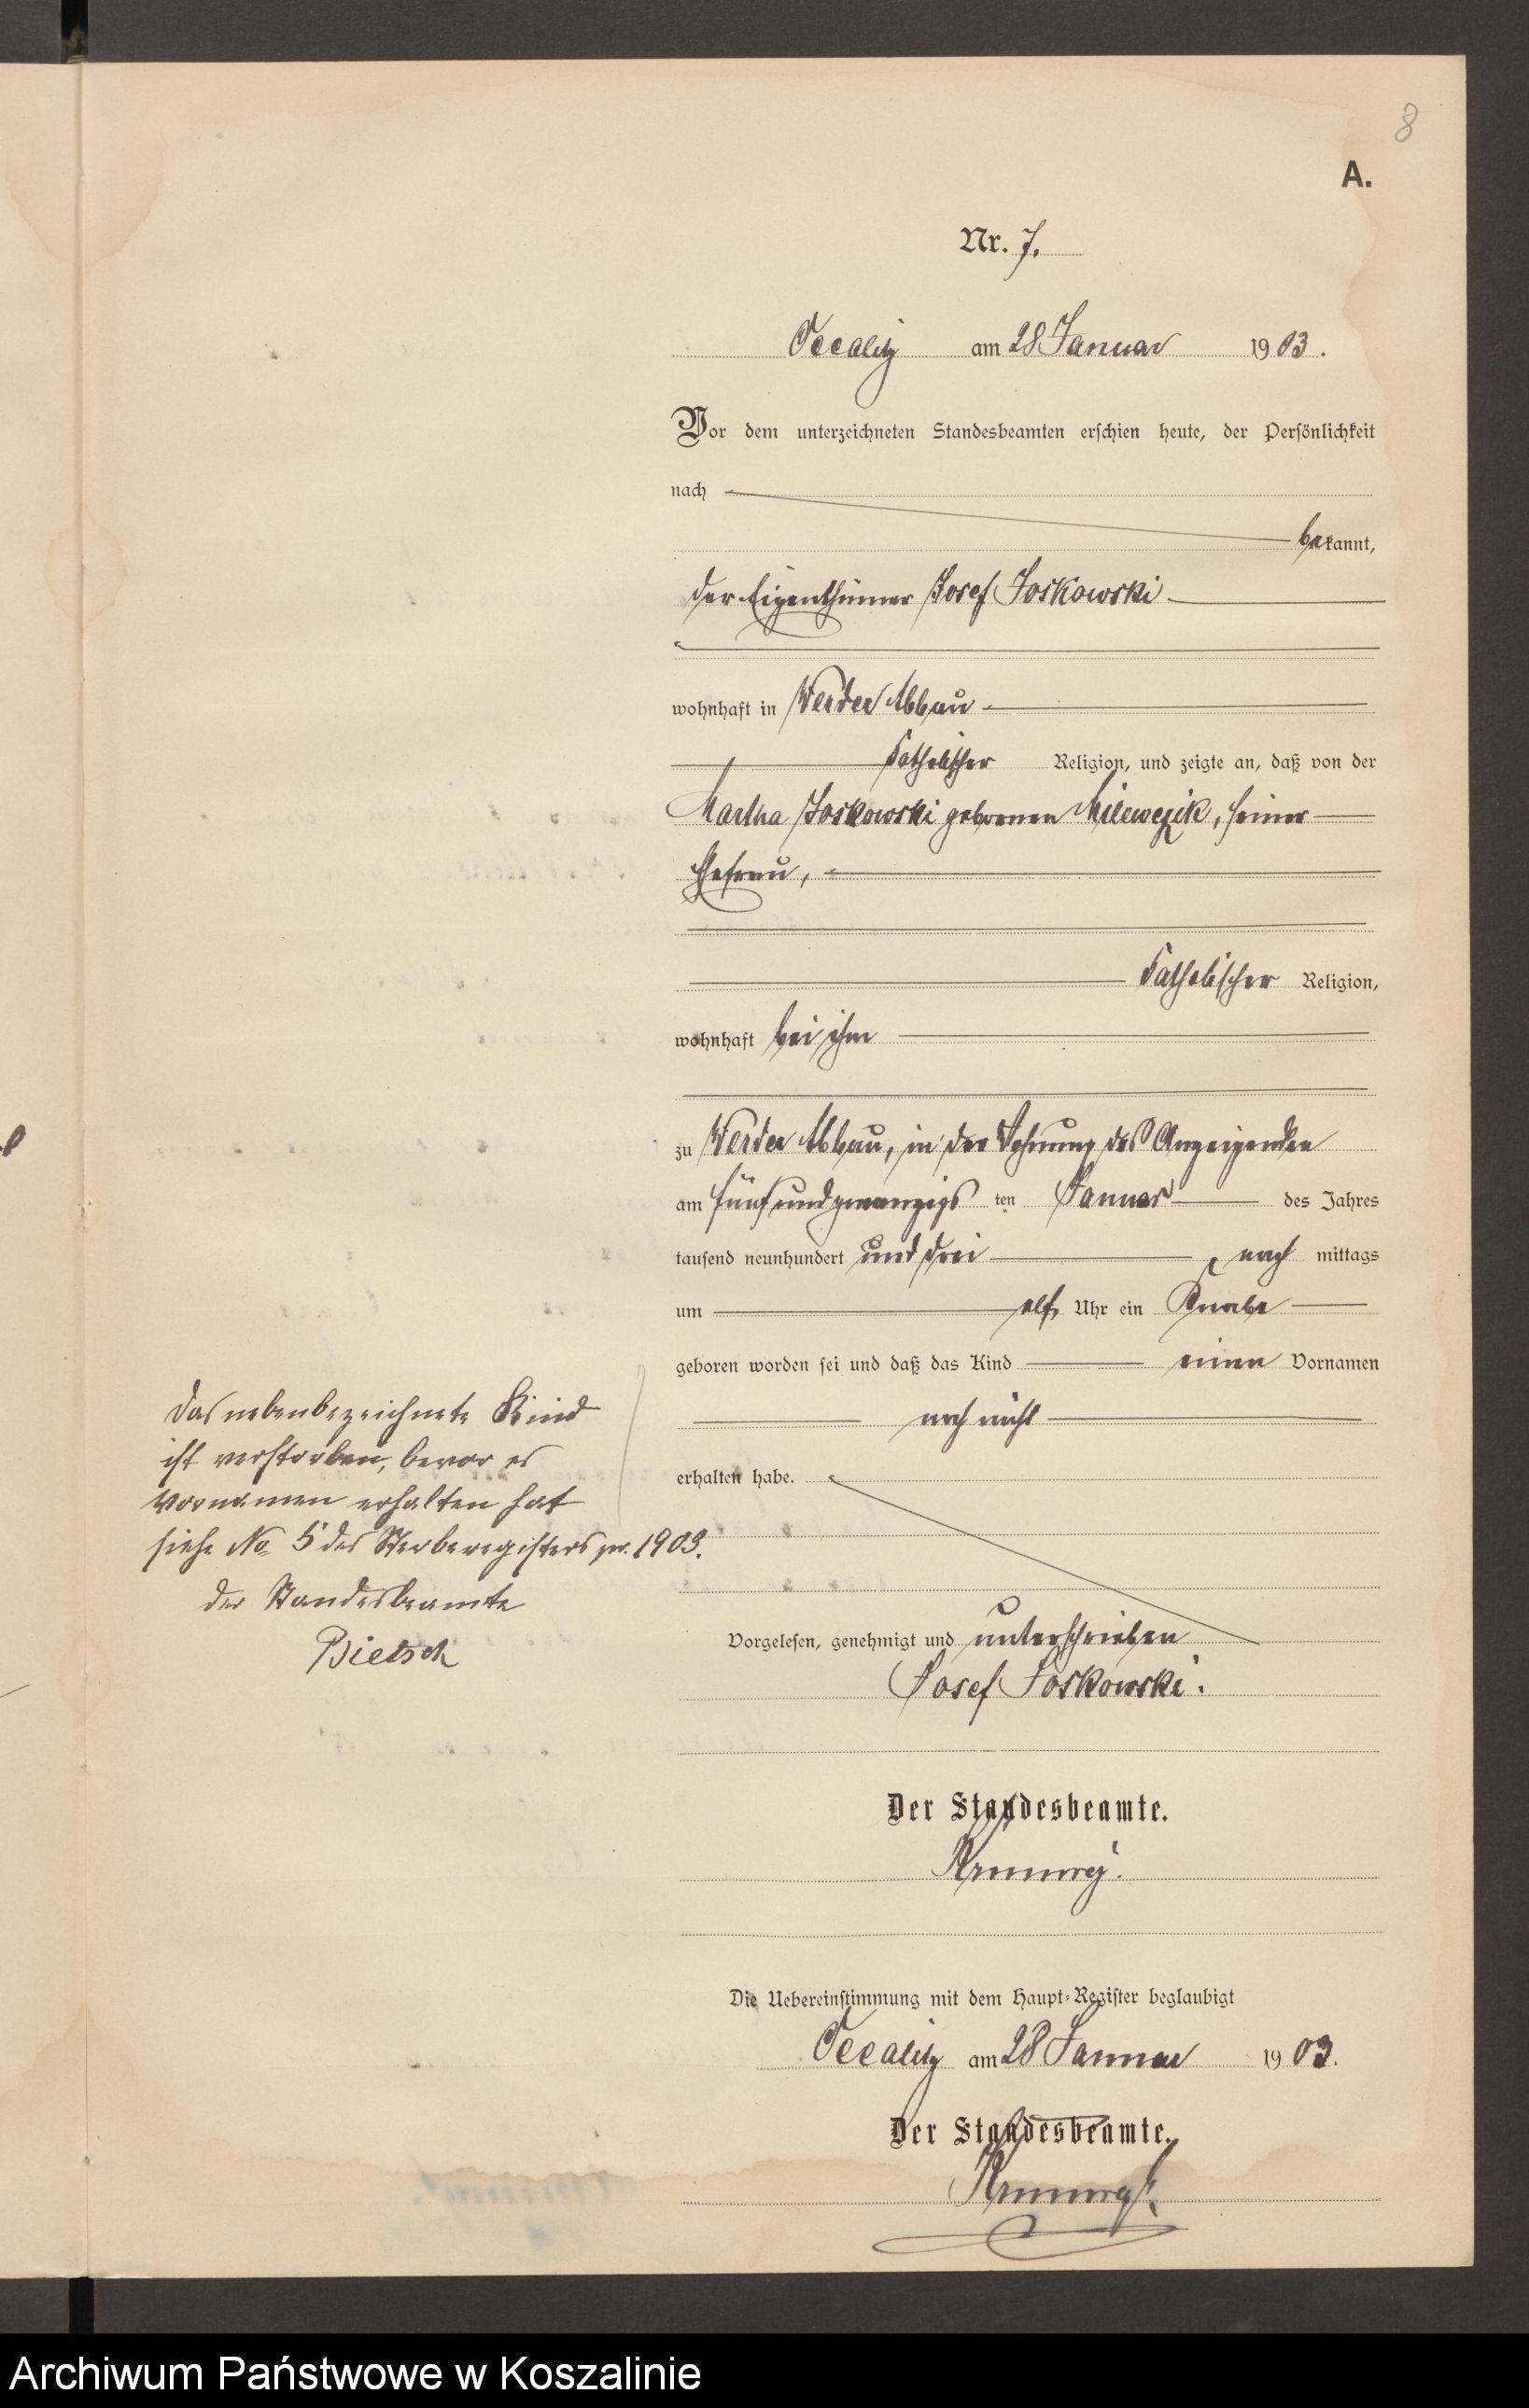 8
A.
Nr. 7.
Oecalitz am 28 Januar 1903.
Vor dem unterzeichneten Standesbeamten erschien heute, der Persönlichkeit
nach
bekannt,
der Eigenthümer Josef Joskowski
wohnhaft in Werder Abbau
katholischer Religion, und zeigte an, daß von der
Martha Joskowski geborenen Milewczik, seiner
Ehefrau,
katholischer Religion,
wohnhaft bei ihm
zu Werder Abbau, in der Wohnung des Anzeigenden
am fünfundzwanzigsten Januar des Jahres
tausend neunhundert und drei, nach mittags
um elf Uhr ein Knabe
geboren worden sei und daß das Kind einen Vornamen
noch nicht
erhalten habe.
Das nebenbezeichnete Kind
ist verstorben, bevor es
Vornamen erhalten hat
siehe No 5 des Sterberegisters pr. 1903.
der Standesbeamte
Bietsch
Vorgelesen, genehmigt und unterschrieben
Josef Joskowski.
Der Standesbeamte.
Die Uebereinstimmung mit dem Haupt-Register beglaubigt
Oecalitz am 28 Januar 1903.
Der Standesbeamte.
Archiwum Państwowe w Koszalinie